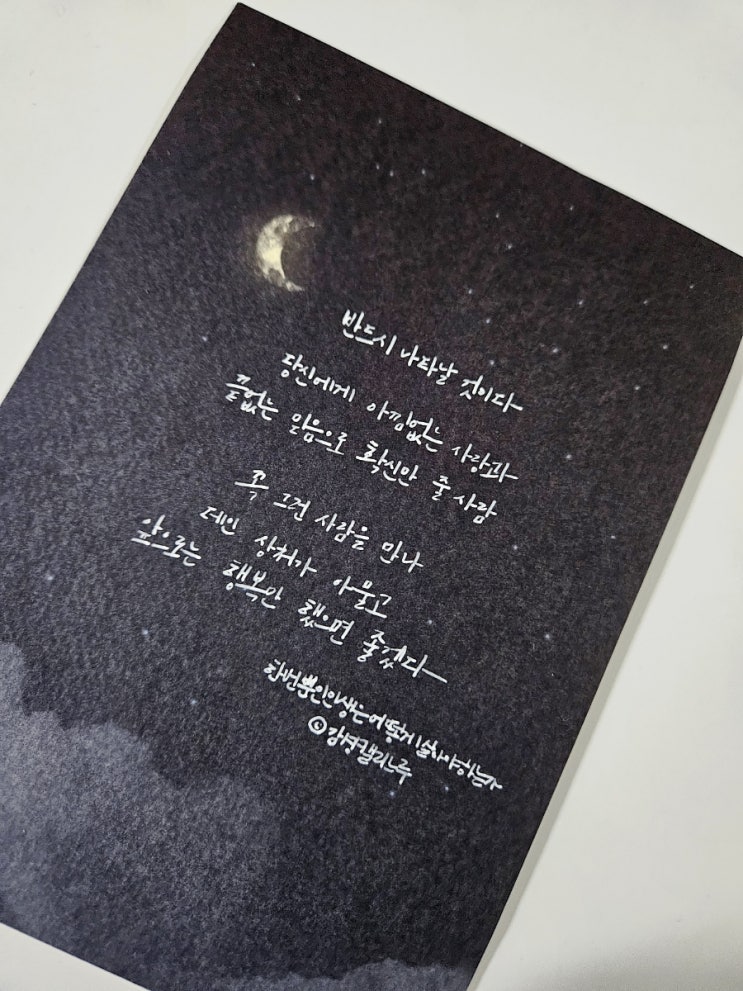 반드시 나타날 것이다
당신에게 아낌없는 사랑과
끝없는 믿음으로 확신만 줄 사람
꼭 그런 사람을 만나
데인 상처가 아물고
앞으로는 행복만 했으면 좋겠다
한번뿐인인생은어떻게살아야하는가